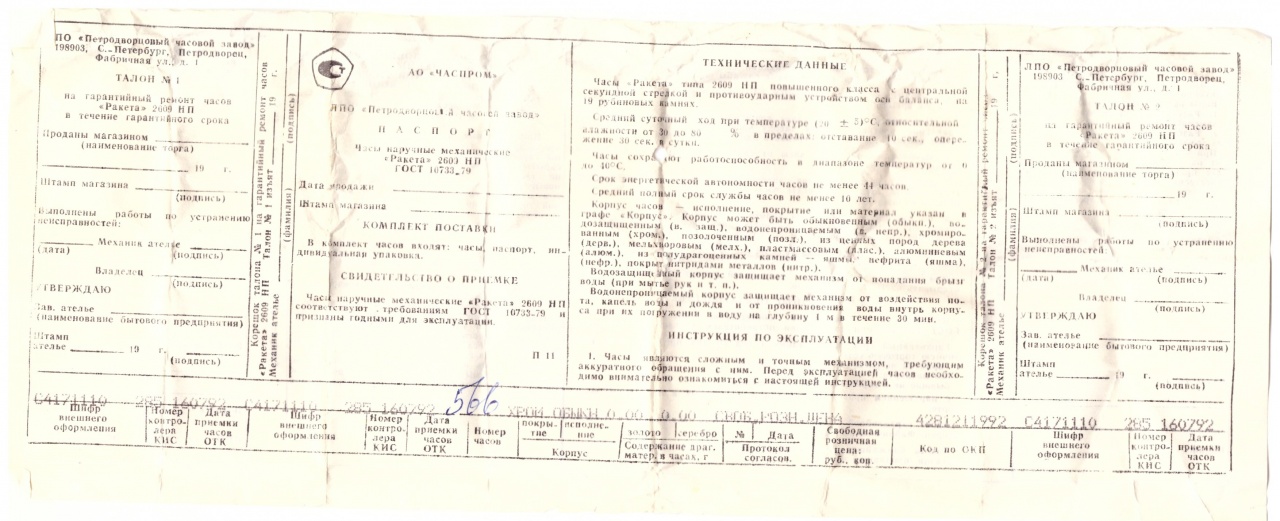 ЛПО «Петродворцовый часовой завод»
198903, С.-Петербург, Петродворец,
Фабричная ул., д. 1
ТАЛОН № 1
на гарантийный ремонт часов
«Ракета» 2609 НП
в течение гарантийного срока
Проданы магазином
(наименование торга)
19 г.
Штамп магазина
(подпись)
Выполнены работы по устранению
неисправностей:
Механик ателье
(дата) (подпись)
Владелец
(подпись)
УТВЕРЖДАЮ
Зав. ателье
(наименование бытового предприятия)
Штамп
ателье 19 г.
(подпись)
Корешок талона № 1 на гарантийный ремонт часов
«Ракета» 2609 НП Талон № 1 изъят 19 г.
Механик ателье
(фамилия) (подпись)
АО «ЧАСПРОМ»
ЛПО «Петродворцовый часовой завод»
ПАСПОРТ
Часы наручные механические
«Ракета» 2609 НП
ГОСТ 10733-79
Дата продажи
Штамп магазина
КОМПЛЕКТ ПОСТАВКИ
В комплект часов входят: часы, паспорт, ин-
дивидуальная упаковка.
СВИДЕТЕЛЬСТВО О ПРИЕМКЕ
Часы наручные механические «Ракета» 2609 НП
соответствуют требованиям ГОСТ 10733-79 и
признаны годными для эксплуатации.
П 11
ТЕХНИЧЕСКИЕ ДАННЫЕ
Часы «Ракета» типа 2609 НП повышенного класса с центральной
секундной стрелкой и противоударным устройством оси баланса, на
19 рубиновых камнях.
Средний суточный ход при температуре (20 ± 5)°С, относительной
влажности от 30 до 80 % в пределах отставание 10 сек., опере-
жение 30 сек. в сутки.
Часы сохраняют работоспособность в диапазоне температур от 0
до 40°С.
Срок энергетической автономности часов не менее 44 часов.
Средний полный срок службы часов не менее 10 лет.
Корпус часов — исполнение, покрытие или материал указан в
графе «Корпус». Корпус может быть обыкновенным (обыкн.), во-
дозащищенным (в. защ.), водонепроницаемым (в. непр.), хромиро-
ванным (хром.), позолоченным (позл.), из ценных пород дерева
(дерв.), мельхиоровым (мелх.), пластмассовым (плас.), алюминиевым
(алюм.), из полудрагоценных камней — яшмы, нефрита (яшма),
(нефр.), покрыт нитридами металлов (нитр.).
Водозащищенный корпус защищает механизм от попадания брызг
воды (при мытье рук и т. п.).
Водонепроницаемый корпус защищает механизм от воздействия по-
та, капель воды и дождя и от проникновения воды внутрь корпу-
са при их погружении в воду на глубину 1 м в течение 30 мин.
ИНСТРУКЦИЯ ПО ЭКСПЛУАТАЦИИ
1. Часы являются сложным и точным механизмом, требующим
аккуратного обращения с ним. Перед эксплуатацией часов необхо-
димо внимательно ознакомиться с настоящей инструкцией.
Корешок талона № 2 на гарантийный ремонт часов
«Ракета» 2609 НП Талон № 2 изъят 19 г.
Механик ателье
(фамилия) (подпись)
ЛПО «Петродворцовый часовой завод»
198903 С.-Петербург, Петродворец,
Фабричная ул., д. 1
ТАЛОН № 2
на гарантийный ремонт часов
«Ракета» 2609 НП
в течение гарантийного срока
Проданы магазином
(наименование торга)
19 г.
Штамп магазина
(подпись)
Выполнены работы по устранению
неисправностей:
Механик ателье
(дата) (подпись)
Владелец
(подпись)
УТВЕРЖДАЮ
Зав. ателье
(наименование бытового предприятия)
Штамп
ателье 19 г.
(подпись)
С4171110 285 160792 С4171110 285 160792 566 ХРОМ.ОБЫКН 0.00 0.00 СВОБ.РОЗН.ЦЕНА 4281211992 С4171110 285 160792
Шифр внешнего оформления
Номер контро-лера КИС
Дата приемки часов ОТК
Шифр внешнего оформления
Номер контро-лера КИС
Дата приемки часов ОТК
Номер часов
покры-тие
исполне-ние
Корпус
золото серебро
Содержание драг. матер. в часах, г
№ Дата
Протокол согласов.
Свободная розничная цена: руб., коп.
Код по ОКП
Шифр внешнего оформления
Номер контро-лера КИС
Дата приемки часов ОТК